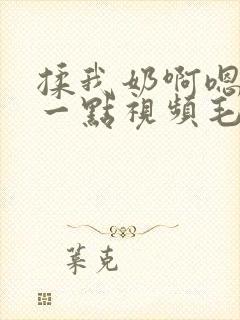 揉我奶啊嗯
一點視頻毛
葉克